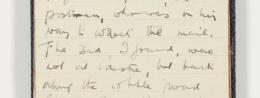 postman, who was on his
way to collect the mail.
The 3rd, I found, were
not at i desire, but back
along the whole road